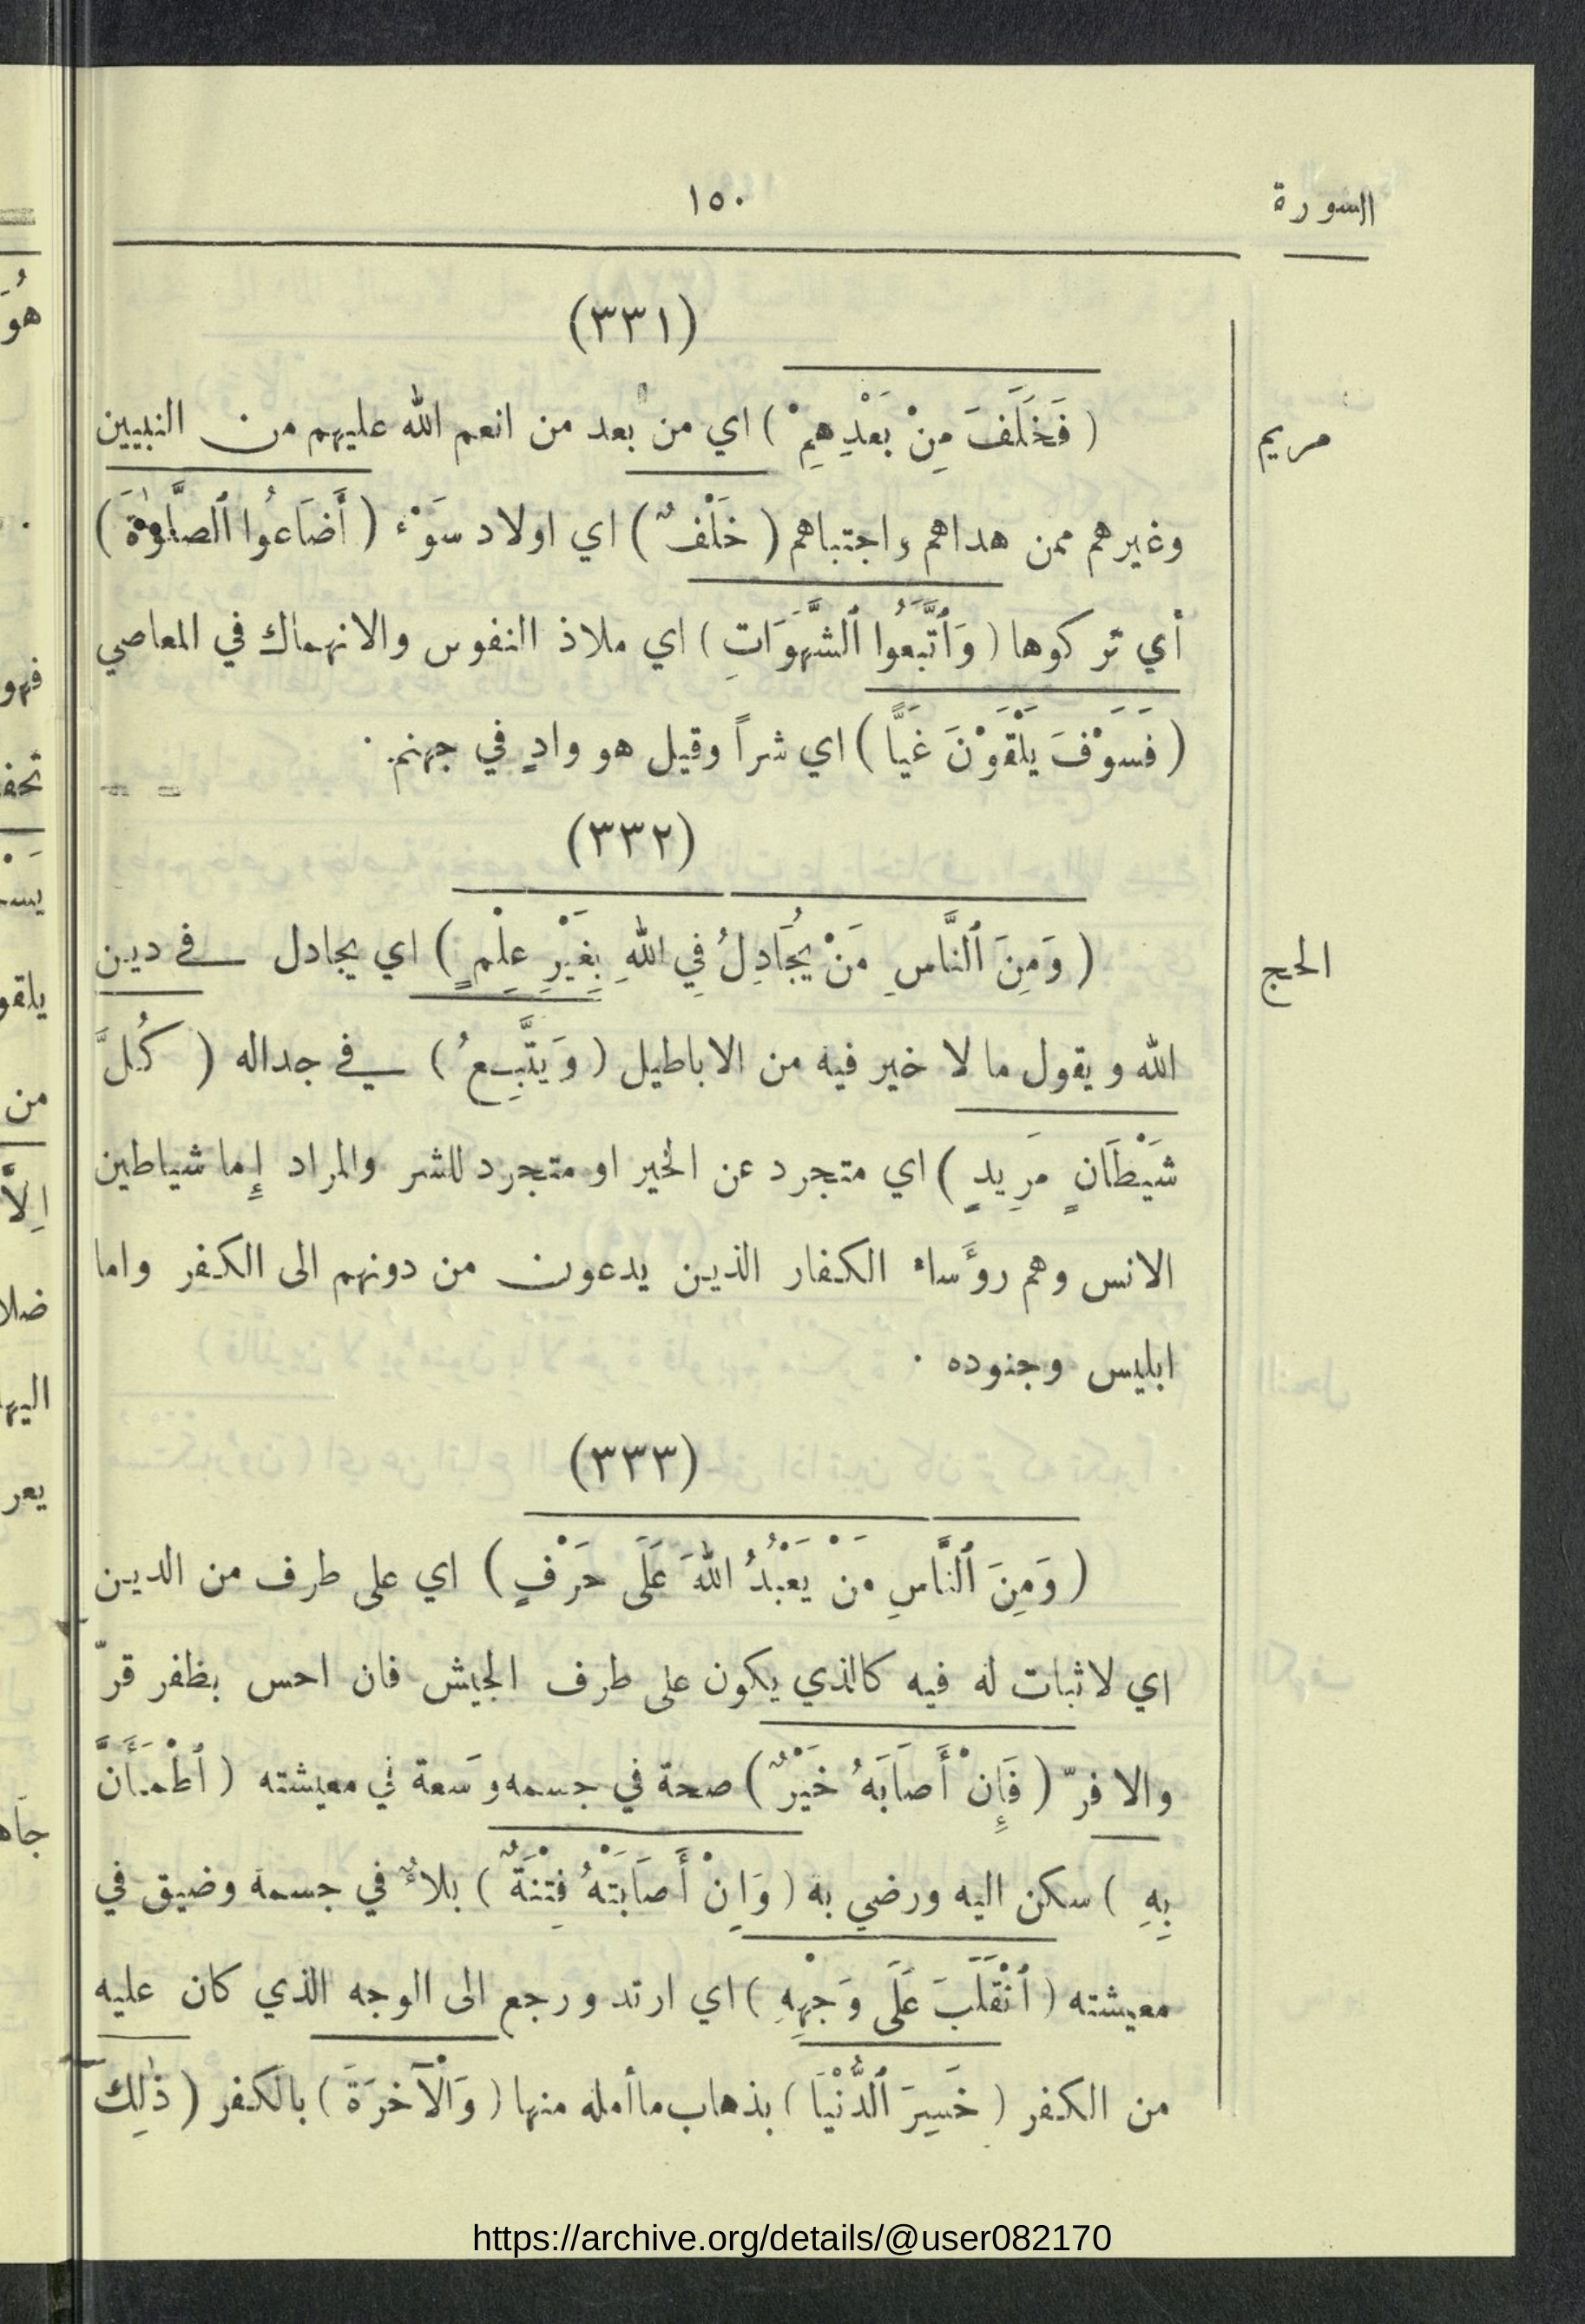 السورة
١٥٠
(٣٣١)
مريم
(فَخَلَفَ مِنْ بَعْدِهِمْ) اي من بعد من انعم الله عليهم من النبيين
وغيرهم ممن هداهم واجتباهم (خَلْفٌ) اي اولاد سَوْء (أَضَاعُوا ٱلصَّلَوٰةَ)
أي تركوها (وَٱتَّبَعُوا ٱلشَّهَوَاتِ) اي ملاذ النفوس والانهماك في المعاصي
(فَسَوْفَ يَلْقَوْنَ غَيًّا) اي شراً وقيل هو وادٍ في جهنم.
(٣٣٢)
الحج
(وَمِنَ ٱلنَّاسِ مَنْ يُجَادِلُ فِي اللهِ بِغَيْرِ عِلْمٍ) اي يجادل في دين
الله ويقول ما لا خير فيه من الاباطيل (وَيَتَّبِعُ) في جداله (كُلَّ
شَيْطَانٍ مَرِيدٍ) اي متجرد عن الخير او متجرد للشر والمراد إما شياطين
الانس وهم رؤَساء الكفار الذين يدعون من دونهم الى الكفر واما
ابليس وجنوده .
(٣٣٣)
(وَمِنَ ٱلنَّاسِ مَنْ يَعْبُدُ اللهَ عَلَى حَرْفٍ) اي على طرف من الدين
اي لا ثبات له فيه كالذي يكون على طرف الجيش فان احس بظفر قرّ
والا فرّ (فَإِنْ أَصَابَهُ خَيْرٌ) صحة في جسمه وسَعة في معيشته (ٱطْمَأَنَّ
بِهِ) سكن اليه ورضي به (وَاِنْ أَصَابَتْهُ فِتْنَةٌ) بلاءٌ في جسمه وضيق في
معيشته (ٱنْقَلَبَ عَلَى وَجْهِهِ) اي ارتد ورجع الى الوجه الذي كان عليه
من الكفر (خَسِرَ ٱلدُّنْيَا) بذهاب ما أمله منها (وَالْآخرَةَ) بالكفر (ذٰلِكَ
https://archive.org/details/@user082170